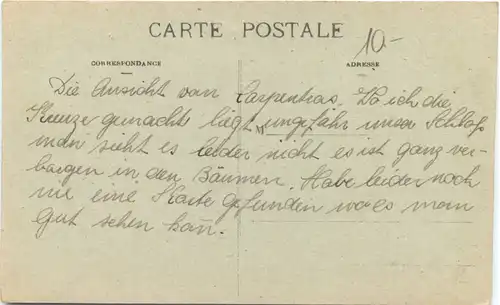 CARTE POSTALE
10-
CORRESPONDANCE
ADRESSE
Die Ansicht van Carpentras. Da ich die
Kreuze gemacht liegt ungefähr unser Schloß
man sieht es leider nicht es ist ganz ver-
borgen in den Bäumen. Habe leider noch
nie eine Karte gefunden wo es man
gut sehen kan.